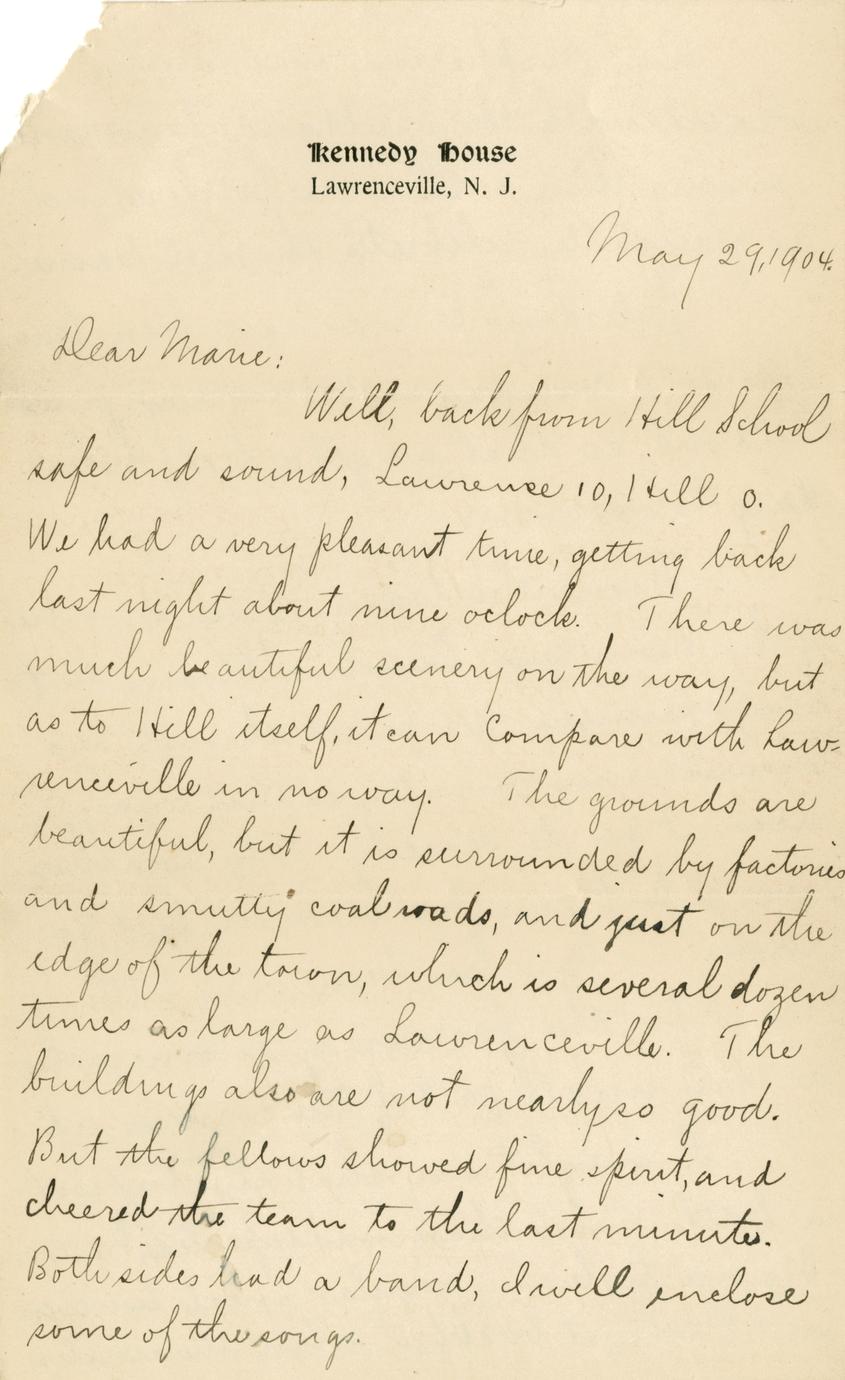 Kennedy House
Lawrenceville, N. J.
May 29, 1904.
Dear Marie:
Well, back from Hill School
safe and sound, Lawrence 10, Hill 0.
We had a very pleasant time, getting back
last night about nine oclock. There was
much beautiful scenery on the way, but
as to Hill itself, it can compare with Law-
renceville in no way. The grounds are
beautiful, but it is surrounded by factories
and smutty coal roads, and just on the
edge of the town, which is several dozen
times as large as Lawrenceville. The
buildings also are not nearly so good.
But the fellows showed fine spirit, and
cheered the team to the last minute.
Both sides had a band, I will enclose
some of the songs.